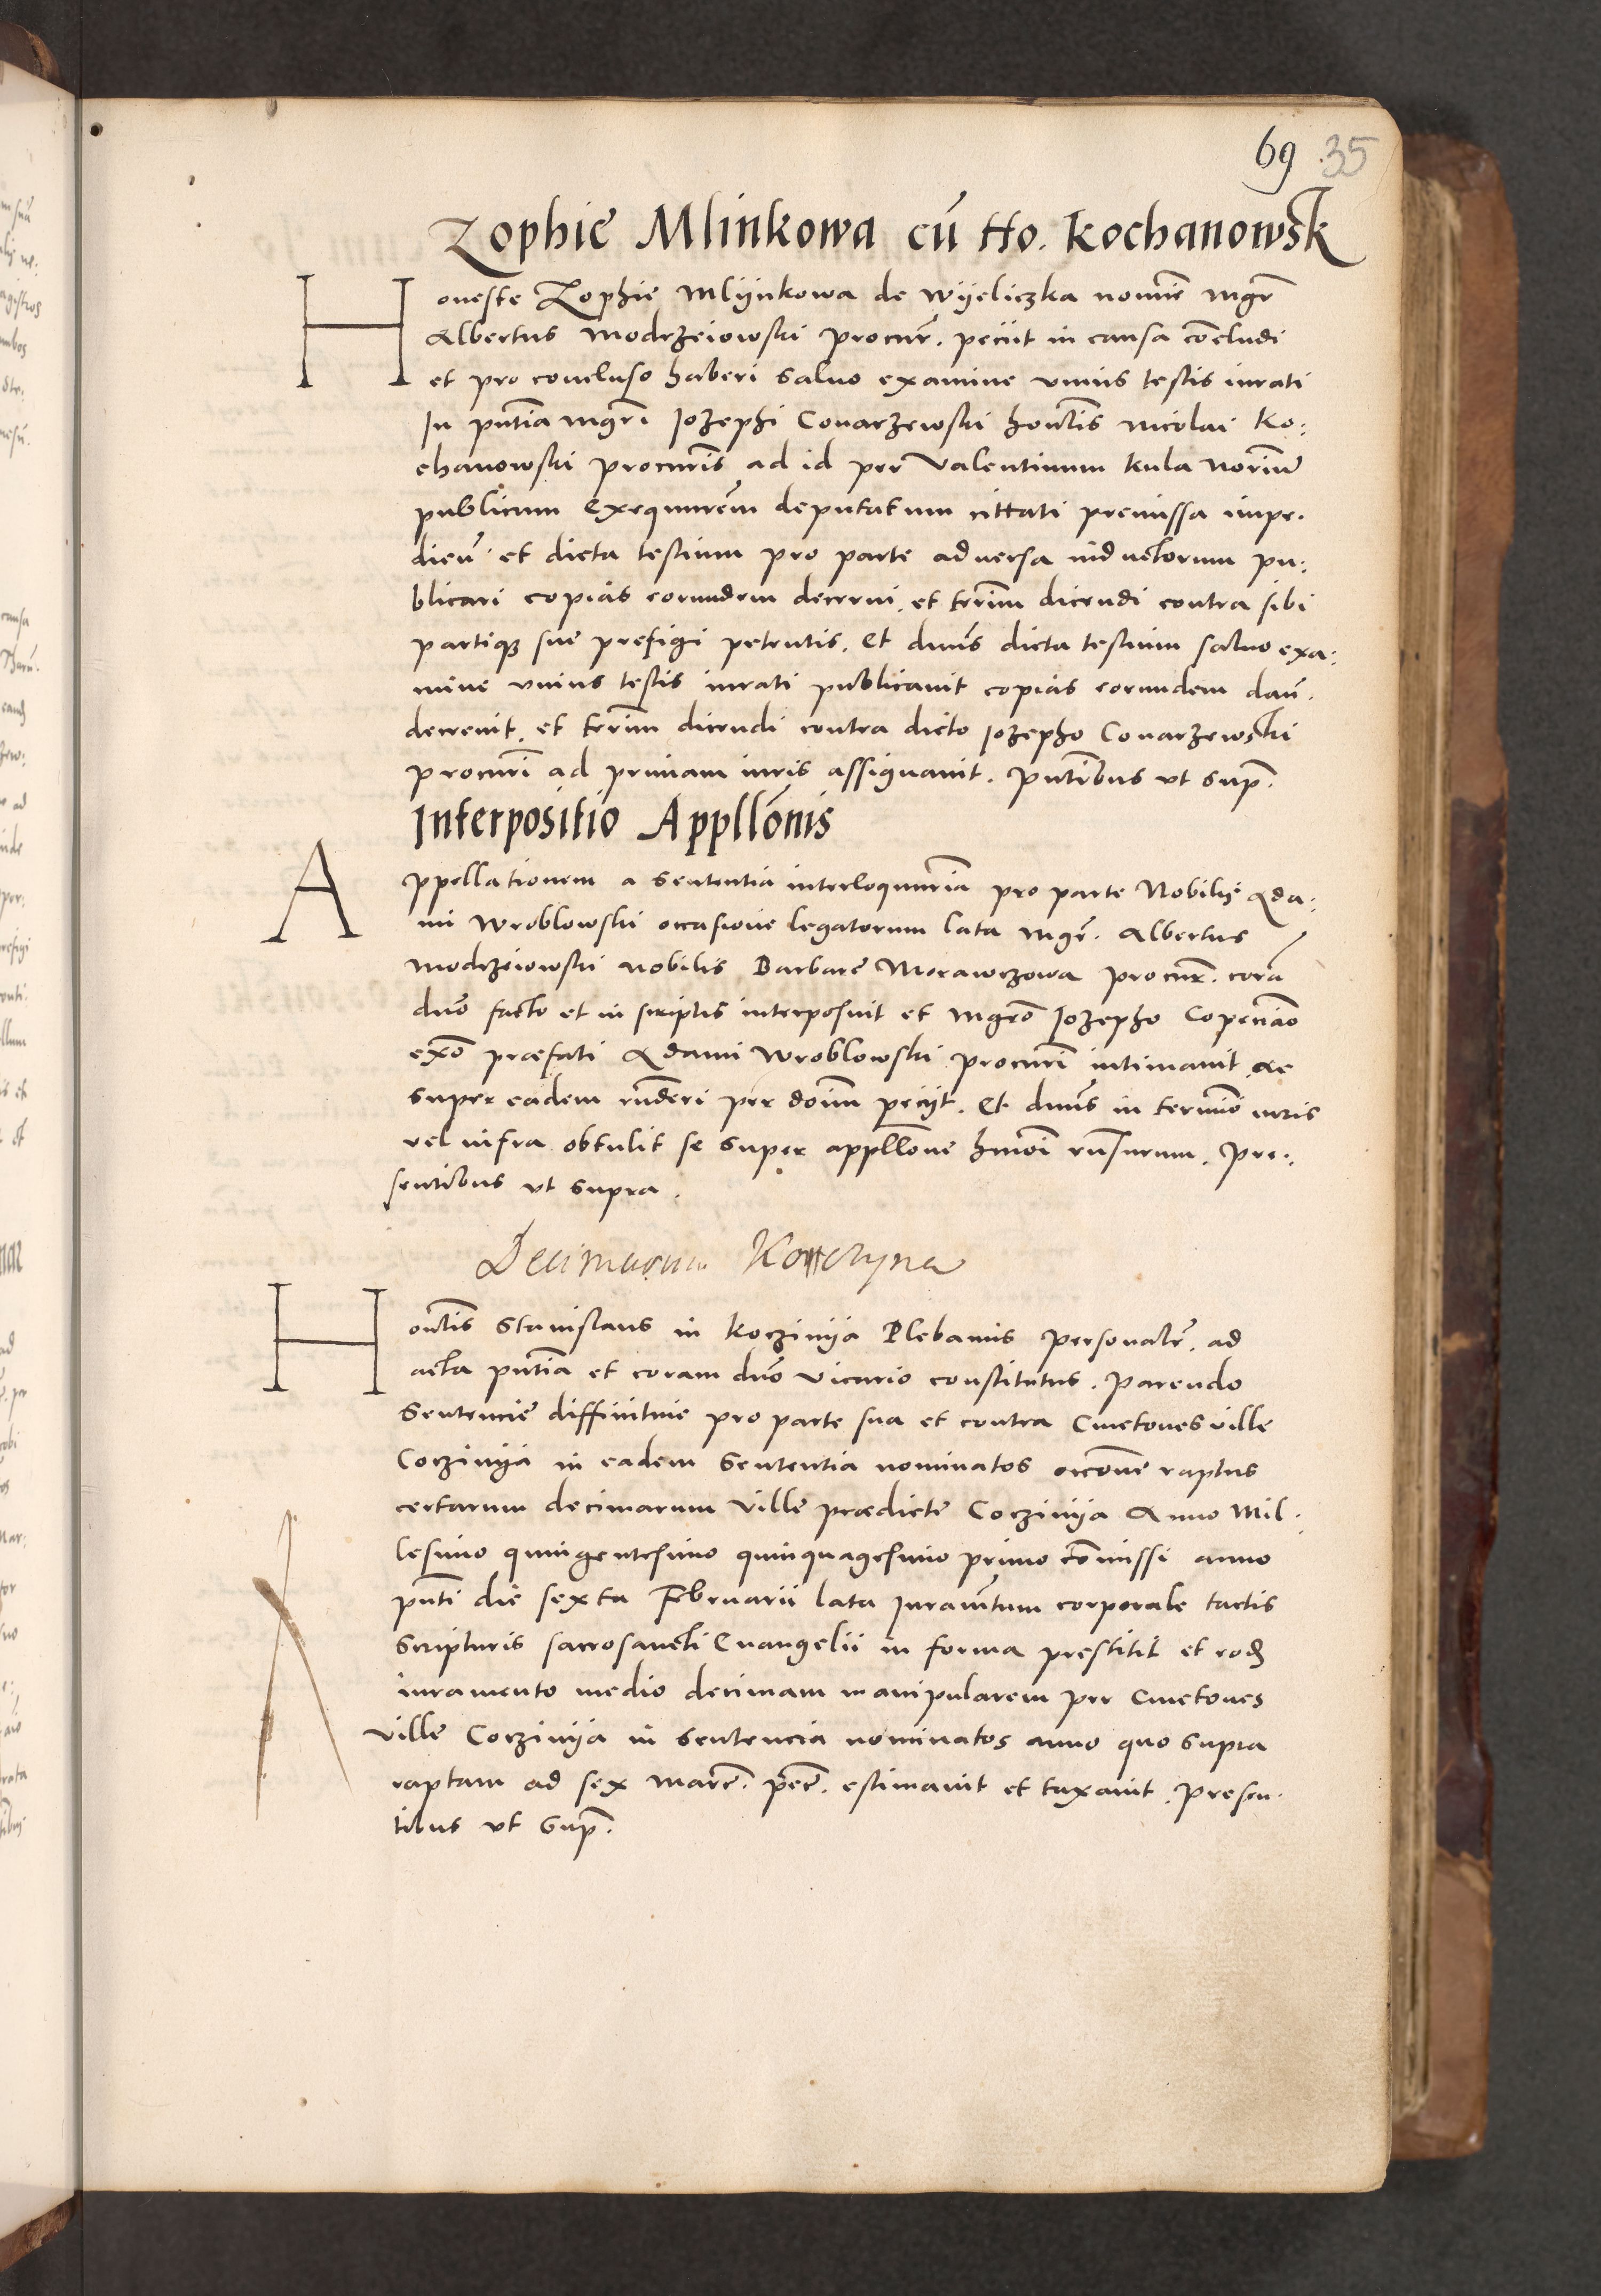 69 35
Zophie Mlinkowa cū Ho. Kochanowsk
Honeste Zophie Mlÿnkowa de Wÿeliczka nomīe Mgr̄
Albertus Modrzeiowski procur̄. peciit in causa cōcludi
et pro concluso haberi saluo examine vnius testis iurati
In pn̄tia mgr̄i Iozephi Conarzewski hon̄tis Nicolai Ko:
chanowski procur̄is ad id per Valentinum Kula nōrium
publicum exequūrem deputatum cittati premissa impe.
dien̄. et dicta testium pro parte aduersa inductorum pu:
blicari copias eorumdem decerni. et termī dicendi contra sibi
partiq3 sue prefigi petentis. Et dnūs dicta testium saluo exa:
mine vnius testis iurati publicauit copias eorumdem dan̄.
decreuit. et termī dicendi contra dicto Iozepho Conarzewski
procur̄i ad primam iuris assignauit. pn̄tibus vt sup̄.
Interpositio Appllōnis
Appellationem a sententia interloquuria pro parte Nobilis Ada:
mi Wroblowski occasione legatorum lata Mgr̄. Albertus
Modrzeiowski nobilis Barbare Morawczowa procur̄. corā
dnō facto et in scriptis interposuit et Mgrō Iozepho Copenāo
exō præfati Adami Wroblowski procur̄i intimauit ac
super eadem rn̄deri per doim̄ peciit. Et dnūs in termino iuris
vel infra obtulit se super appllōne hmōi rn̄surum. Pre:
sentibus vt supra.
Decimarum Korczyna
Hon̄tis Stanislaus in Korzinÿa Plebanus personalr̄. ad
acta pn̄tia et coram dnō Vicario constitutus. Parendo
Sententie diffinitiue pro parte sua et contra Cmetones ville
Corzinÿa in eadem Sententia nominatos occōne raptus
certarum decimarum ville prædicte Corzinÿa Anno Mil.
lesimo quingentesimo quinquagesimo primo cōmissi anno
pn̄ti die sexta Februarii lata Iuramn̄tum corporale tactis
scripturis sacrosancti Euangelii in forma prestitit et eod̄
iuramento medio decimam manipularem per Cmetones
ville Corzinÿa in sentencia nominatos anno quo supra
raptam ad sex marc̄. pec̄. estimauit et taxauit. Presen.
tibus vt sup̄.